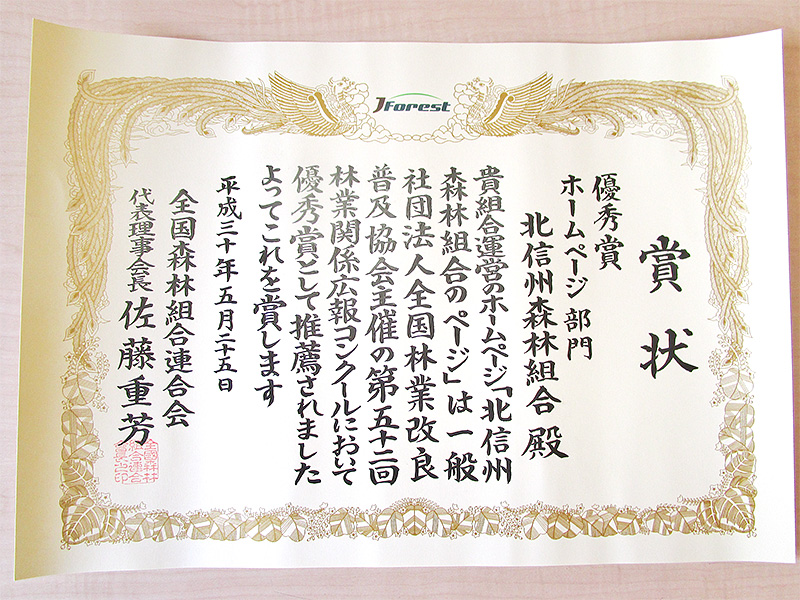 JForest
賞状
優秀賞
ホームページ部門
北信州森林組合 殿
貴組合運営のホームページ「北信州
森林組合のページ」は一般
社団法人全国林業改良
普及協会主催の第五十二回
林業関係広報コンクールにおいて
優秀賞として推薦されました
よってこれを賞します
平成三十年五月二十五日
全国森林組合連合会
代表理事会長 佐藤重芳